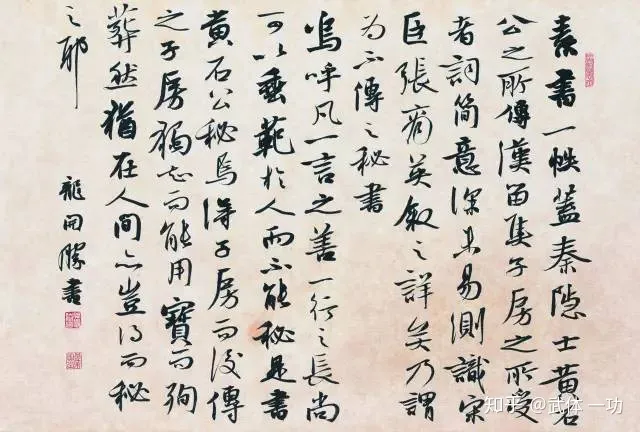 素書一帙蓋秦隐士黄石
公之所傳漢留侯子房之所受
者詞简意深未易測識宋
臣張商英叙之詳矣乃謂
为不傳之秘書
嗚呼凡一言之善一行之長尚
可以垂範於人而不能秘是書
黄石公秘焉得子房而後傳
之子房獨知而能用寶而殉
葬然猶在人間亦豈得而秘
之耶
龍開勝書
知乎 @武体一功